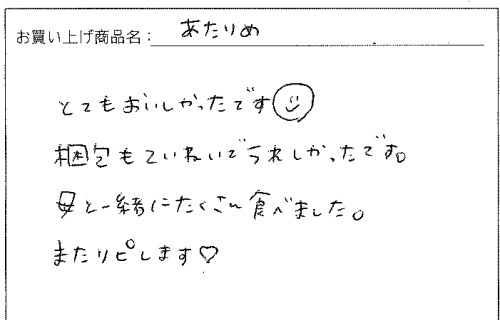 お買い上げ商品名：あたりめ
とてもおいしかったです☺
梱包もていねいでうれしかったです。
母と一緒にたくさん食べました。
またリピします♡